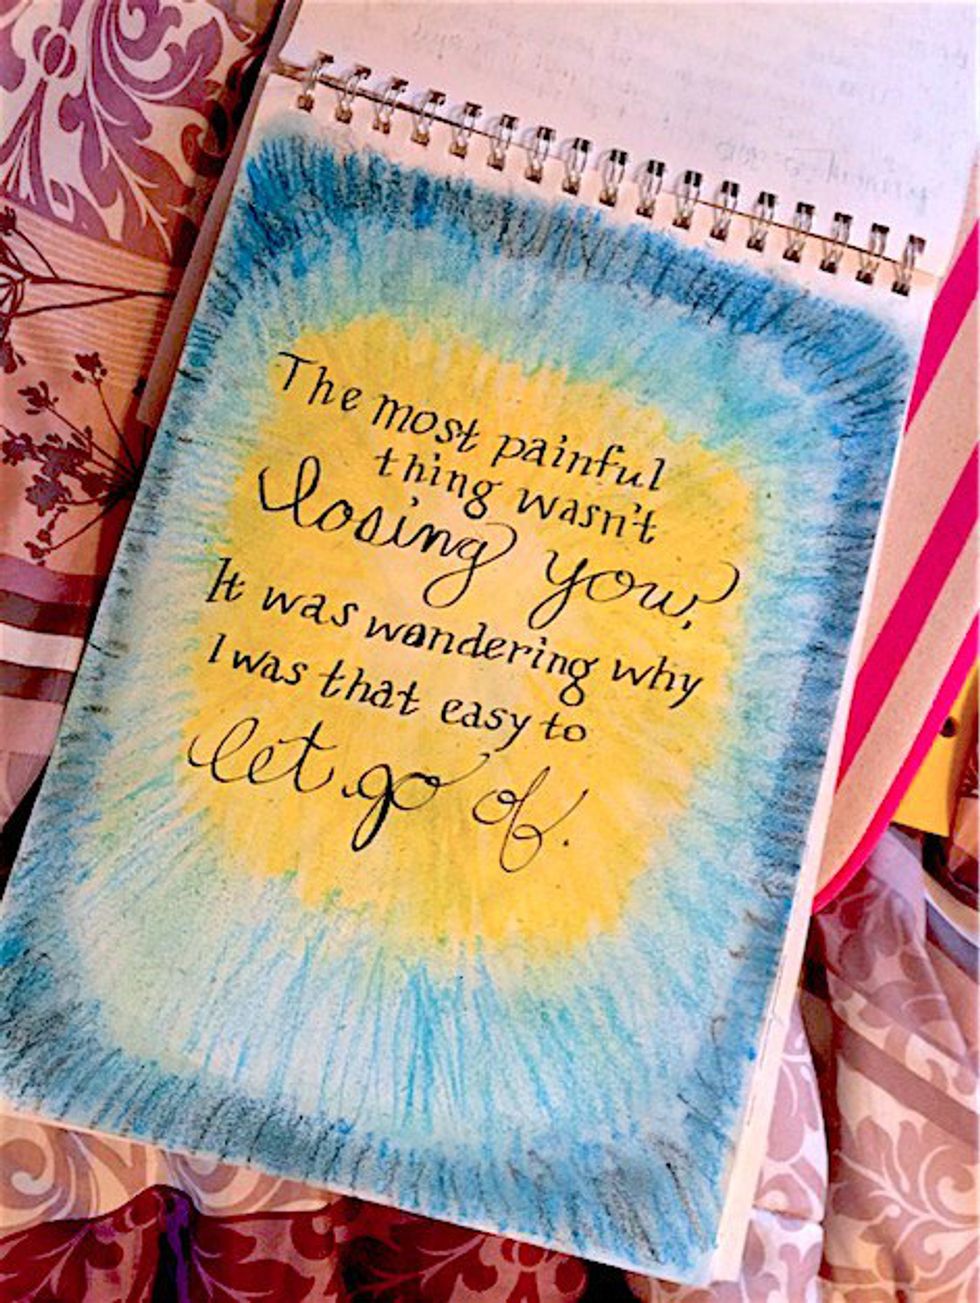 The most painful
thing wasn't
losing you,
It was wondering why
I was that easy to
let go of.